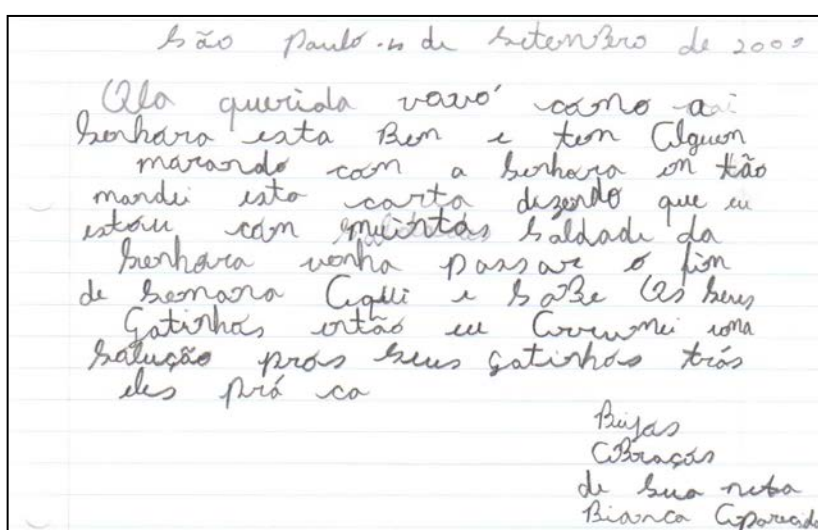 São Paulo de Setembro de 2009
Ola querida vovó como a
senhora esta Bem e tem Alguem
morando com a senhora en tão
mandei esta carta dizendo que eu
estou com muintas saldade da
senhora venha passar o fim
de semana Aqui e saBe Os seus
Gatinhos então eu Arrumei uma
solução pros seus gatinhos trás
eles prá ca
Beijos
ABraços
de sua neta
Bianca Aparecida